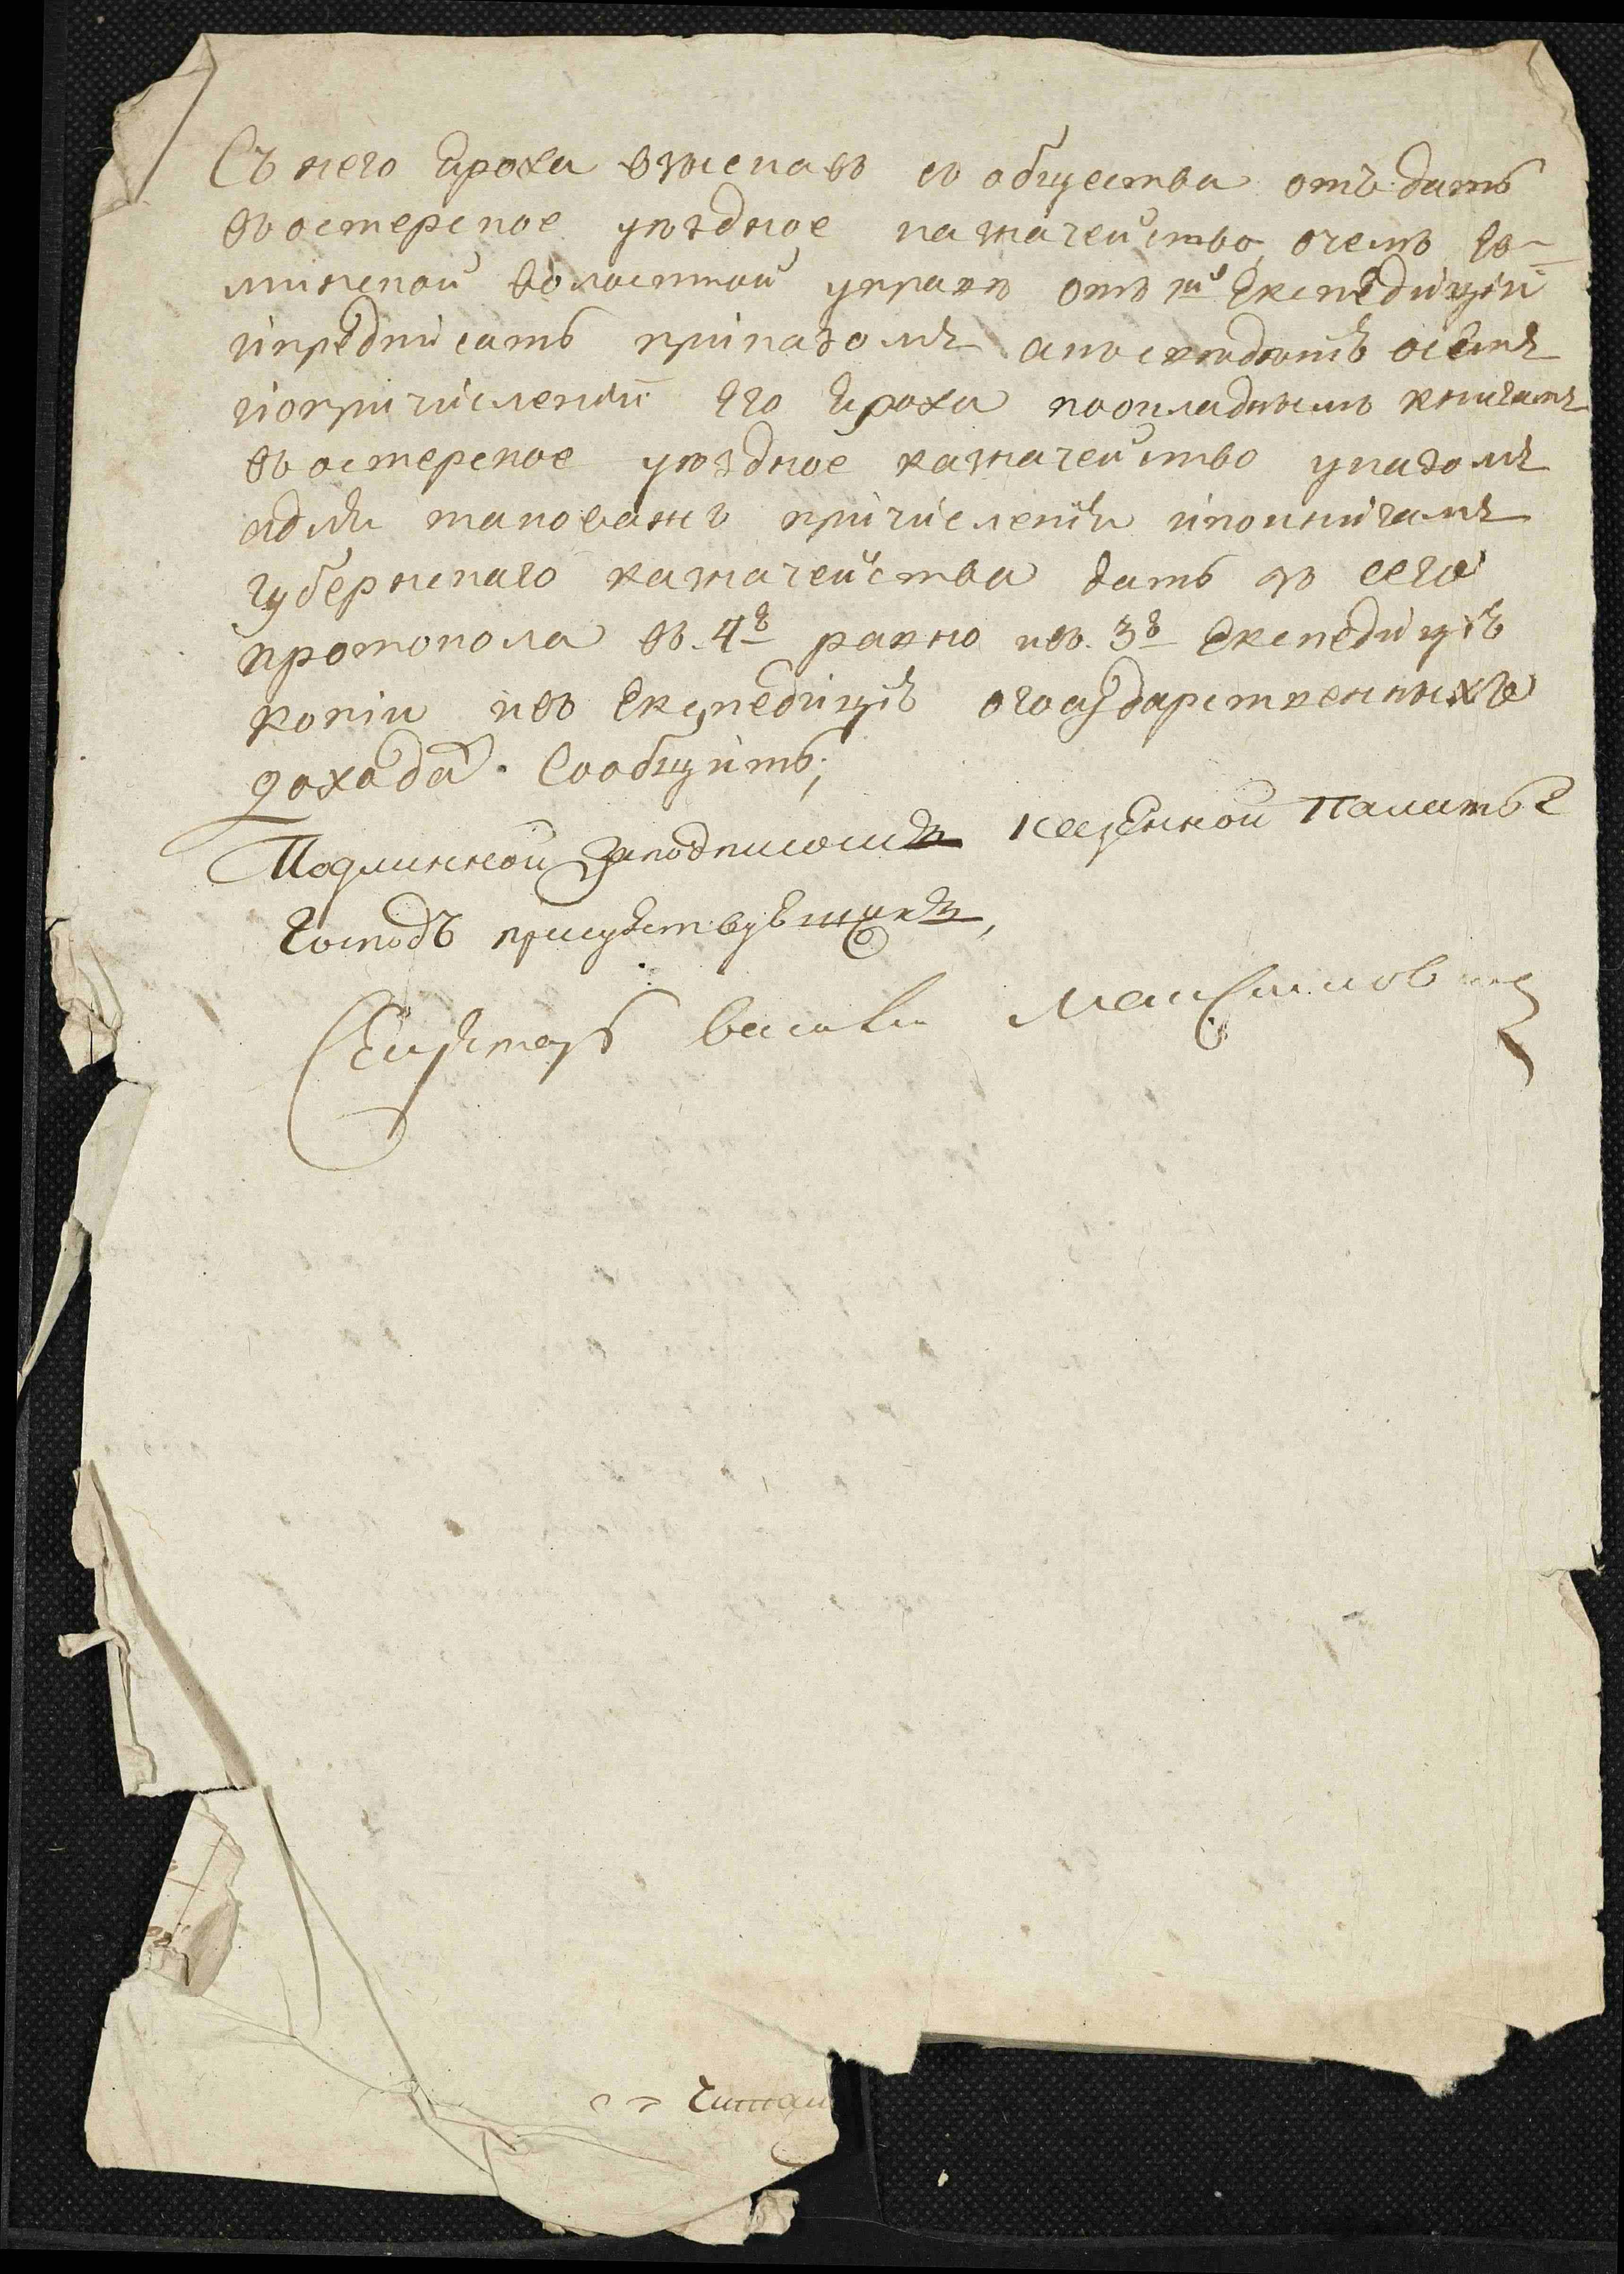 Съ него Ероха взыскавъ со общества отъдать
въ остерское уездное казначейство, о чемъ Го-
минской волостной управе отъ Експедиции
и предписать приказомъ а последнить о семъ
и опричислении Его Ероха по окладнымъ книгамъ
въ остерское уездное казначейство указомъ
а для таковажъ причисления и по книгамъ
губернскаго казначейства дать съ сего
протокола въ 4й равно и въ 3й Експедиціѣ
копіи и въ Експедицію о государственныхъ
дохода. Сообщить;
Подлинной за подписомъ казенной Палаты
Господъ присудствующихъ,
Секретарь Василий Максимович
Читал